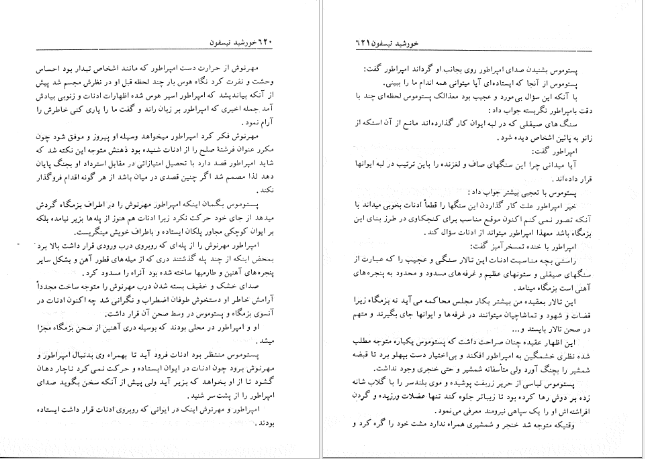 ۶۲۰ خورشید تیسفون
مهرنوش از حرارت دست امپراطور که مانند اشخاص تبدار بود احساس
وحشت و نفرت کرد نگاه هوس بار چند لحظه قبل او در نظرش مجسم شد پیش
از آنکه بیاندیشد که امپراطور اسیر هوس شده اظهارات ادنات و زنوبی بیادش
آمد جمله اخیری که امپراطور بر زبان راند و گفت ما را یاری کنی خاطرش را
آرام نمود.
مهرنوش فکر کرد امپراطور میخواهد وسیله او پیروز و موفق شود چون
مکرر عنوان فرشتهٔ صلح را از ادنات شنیده بود ذهنش متوجه این نکته شد که
شاید امپراطور قصد دارد با تحصیل امتیازاتی در مقابل استرداد او بجنگ پایان
دهد لذا مصمم شد اگر چنین قصدی در میان باشد از هر گونه اقدام فروگذار
نکند.
پستوموس بگمان اینکه امپراطور مهرنوش را در اطراف بزمگاه گردش
میدهد از جای خود حرکت نکرد زیرا ادنات هم هنوز از پله‌ها بزیر نیامده بلکه
بر ایوان کوچکی مجاور پلکان ایستاده و باطراف خویش مینگریست.
امپراطور مهرنوش را از پله‌ای که روبروی درب ورودی قرار داشت بالا برد
بمحض اینکه از چند پله گذشتند دری که از میله‌های قطور آهن و بشکل سایر
پنجره‌های آهنین و طارمیها ساخته شده بود آنراه را مسدود کرد.
صدای خشک و خفیف بسته شدن درب مهرنوش را متوجه ساخت مجدداً
آرامش خاطر او دستخوش طوفان اضطراب و نگرانی شد چه اکنون ادنات در
آنسوی بزمگاه و پستوموس در وسط صحن آن قرار داشت.
او و امپراطور در محلی بودند که بوسیله دری آهنین از صحن بزمگاه مجزا
میشد.
پستوموس منتظر بود ادنات فرود آید تا بهمراه وی بدنبال امپراطور و
مهرنوش برود چون ادنات در ایوان ایستاده و حرکت نمی کرد ناچار دهان
گشود تا از او بخواهد که بزیر آید ولی پیش از آنکه سخن بگوید صدای
امپراطور را از پشت سر شنید.
امپراطور و مهرنوش اینک در ایوانی که روبروی ادنات قرار داشت ایستاده
بودند.
خورشید تیسفون ۶۲۱
پستوموس بشنیدن صدای امپراطور روی بجانب او گرداند امپراطور گفت:
پستوموس از آنجا که ایستاده‌ای آیا میتوانی همه اندام ما را ببینی.
با آنکه این سؤال بی‌مورد و عجیب بود معذالک پستوموس لحظه‌ای چند با
دقت بامپراطور نگریسته جواب داد:
سنگ های صیقلی که در لبه ایوان کار گذارده‌اند مانع از آن استکه از
زانو به پائین اشخاص دیده شود.
امپراطور گفت:
آیا میدانی چرا این سنگهای صاف و لغزنده را باین ترتیب در لبه ایوانها
قرار داده‌اند.
پستوموس با تعجبی بیشتر جواب داد:
خیر امپراطور علت کار گذاردن این سنگها را قطعاً ادنات بخوبی میداند با
آنکه تصور نمی کنم اکنون موقع مناسب برای کنجکاوی در طرز بنای این
بزمگاه باشد معهذا امپراطور میتواند از ادنات سؤال کند.
امپراطور با خنده تمسخرآمیز گفت:
راستی بچه مناسبت ادنات این تالار سنگی و عجیب را که عبارت از
سنگهای صیقلی و ستونهای عظیم و غرفه‌های مسدود و محدود به پنجره‌های
آهنی است بزمگاه مینامد.
این تالار بعقیده من بیشتر بکار مجلس محاکمه می آید نه بزمگاه زیرا
قضات و شهود و تماشاچیان میتوانند در غرفه‌ها و ایوانها جای بگیرند و متهم
در صحن تالار بایستد و...
این اظهار عقیده چنان صراحت داشت که پستوموس یکباره متوجه مطلب
شده نظری خشمگین به امپراطور افکند و بی‌اختیار دست بپهلو برد تا قبضه
شمشیر را بچنگ آورد ولی متأسفانه شمشیر و حتی خنجری وجود نداشت.
پستوموس لباسی از حریر زربفت پوشیده و موی بلندسر را با گلاب شانه
زده بر دوش رها کرده بود تا زیباتر جلوه کند تنها عضلات ورزیده و گردن
افراشته‌اش او را یک سپاهی نیرومند معرفی می‌نمود.
وقتیکه متوجه شد خنجر و شمشیری همراه ندارد مشت خود را گره کرد و